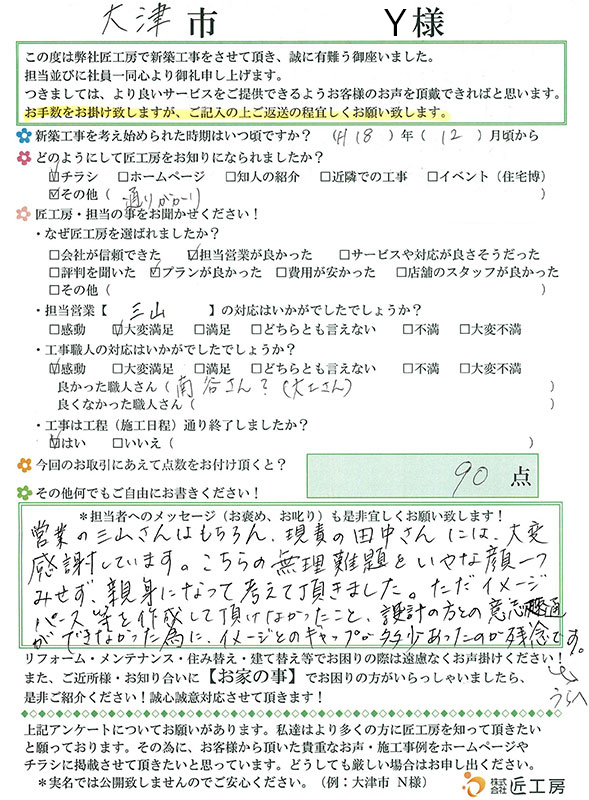 大津市 Y様
この度は弊社匠工房で新築工事をさせて頂き、誠に有難う御座いました。
担当並びに社員一同心より御礼申し上げます。
つきましては、より良いサービスをご提供できるようお客様のお声を頂戴できればと思います。
お手数をお掛け致しますが、ご記入の上ご返送の程宜しくお願い致します。
新築工事を考え始められた時期はいつ頃ですか?(H18)年(12)月頃から
どのようにして匠工房をお知りになられましたか?
☑チラシ □ホームページ □知人の紹介 □近隣での工事 □イベント(住宅博)
☑その他(通りがかり)
匠工房・担当の事をお聞かせください!
・なぜ匠工房を選ばれましたか?
□会社が信頼できた ☑担当営業が良かった □サービスや対応が良さそうだった
□評判を聞いた ☑プランが良かった □費用が安かった □店舗のスタッフが良かった
□その他( )
・担当営業【 三山 】の対応はいかがでしたでしょうか?
□感動 ☑大変満足 □満足 □どちらとも言えない □不満 □大変不満
・工事職人の対応はいかがでしたでしょうか?
☑感動 □大変満足 □満足 □どちらとも言えない □不満 □大変不満
良かった職人さん(南谷さん?(大工さん) )
良くなかった職人さん( )
・工事は工程(施工日程)通り終了しましたか?
☑はい □いいえ( )
今回のお取引にあえて点数をお付け頂くと? 90点
その他何でもご自由にお書きください!
*担当者へのメッセージ(お褒め、お叱り)も是非宜しくお願い致します!
営業の三山さんはもちろん、現責の田中さんには、大変
感謝しています。こちらの無理難題をいやな顔一つ
みせず、親身になって考えて頂きました。ただイメージ
パース等を作成して頂けなかったこと、設計の方との意志疎通
ができなかった為に、イメージとのギャップが多少あったのが残念です。
リフォーム・メンテナンス・住み替え・建て替え等でお困りの際は遠慮なくお声掛けください!
また、ご近所様・お知り合いに【お家の事】でお困りの方がいらっしゃいましたら、
是非ご紹介ください!誠心誠意対応させて頂きます!
うらへ
上記アンケートについてお願いがあります。私達はより多くの方に匠工房を知って頂きたい
と願っております。その為に、お客様から頂いた貴重なお声・施工事例をホームページや
チラシに掲載させて頂きたいと思っています。どうしても厳しい場合はお申し出ください。
*実名では公開致しませんのでご安心ください。(例:大津市 N様)
株式会社 匠工房